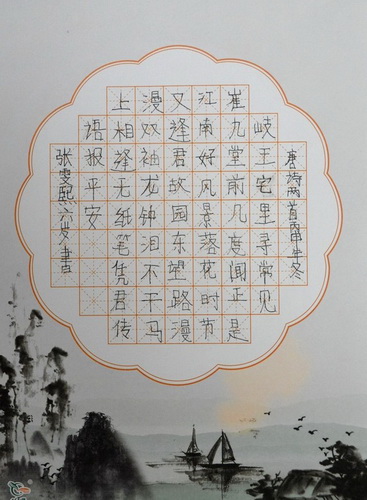 唐诗两首丙申年冬
岐王宅里寻常见
崔九堂前几度闻正是
江南好风景落花时节
又逢君故园东望路漫
漫双袖龙钟泪不干马
上相逢无纸笔凭君传
语报平安
张雯熙六岁书